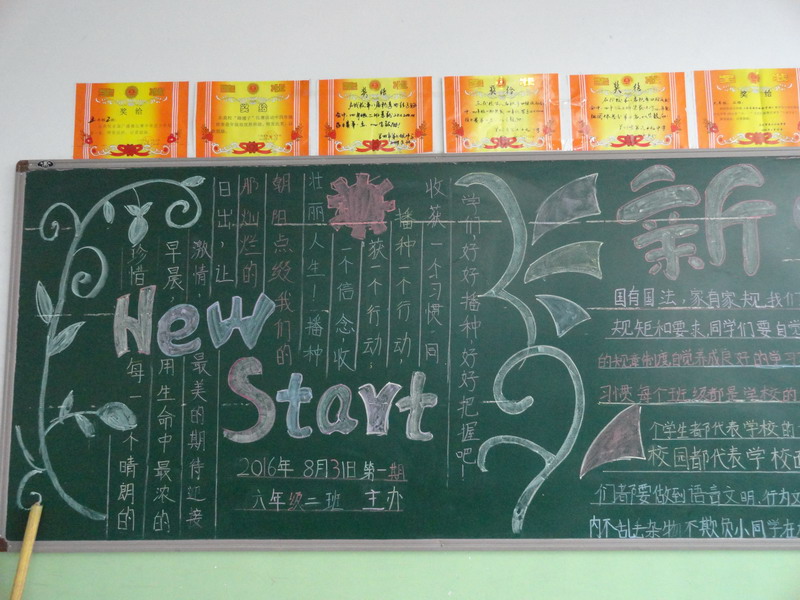 奖给
奖给
奖给
奖给
奖给
奖给
珍惜每一个晴朗的
早晨,用生命中最浓的
激情,最美的期待迎接
日出,让
那灿烂的
朝阳点缀我们的
壮丽人生!播种
一个信念收
获一个行动,
播种一个行动
收获一个习惯,同
学们好好播种,好好把握吧!
New
Start
2016年8月31日第一期
六年级二班 主办
新
国有国法,家有家规,我们
规矩和要求同学们要自觉
的规章制度自觉养成良好的学习
习惯每个班级都是学校的
个学生都代表学校的
校园都代表学校
们都要做到语言文明,行为文
内不乱丢杂物不欺负小同学在